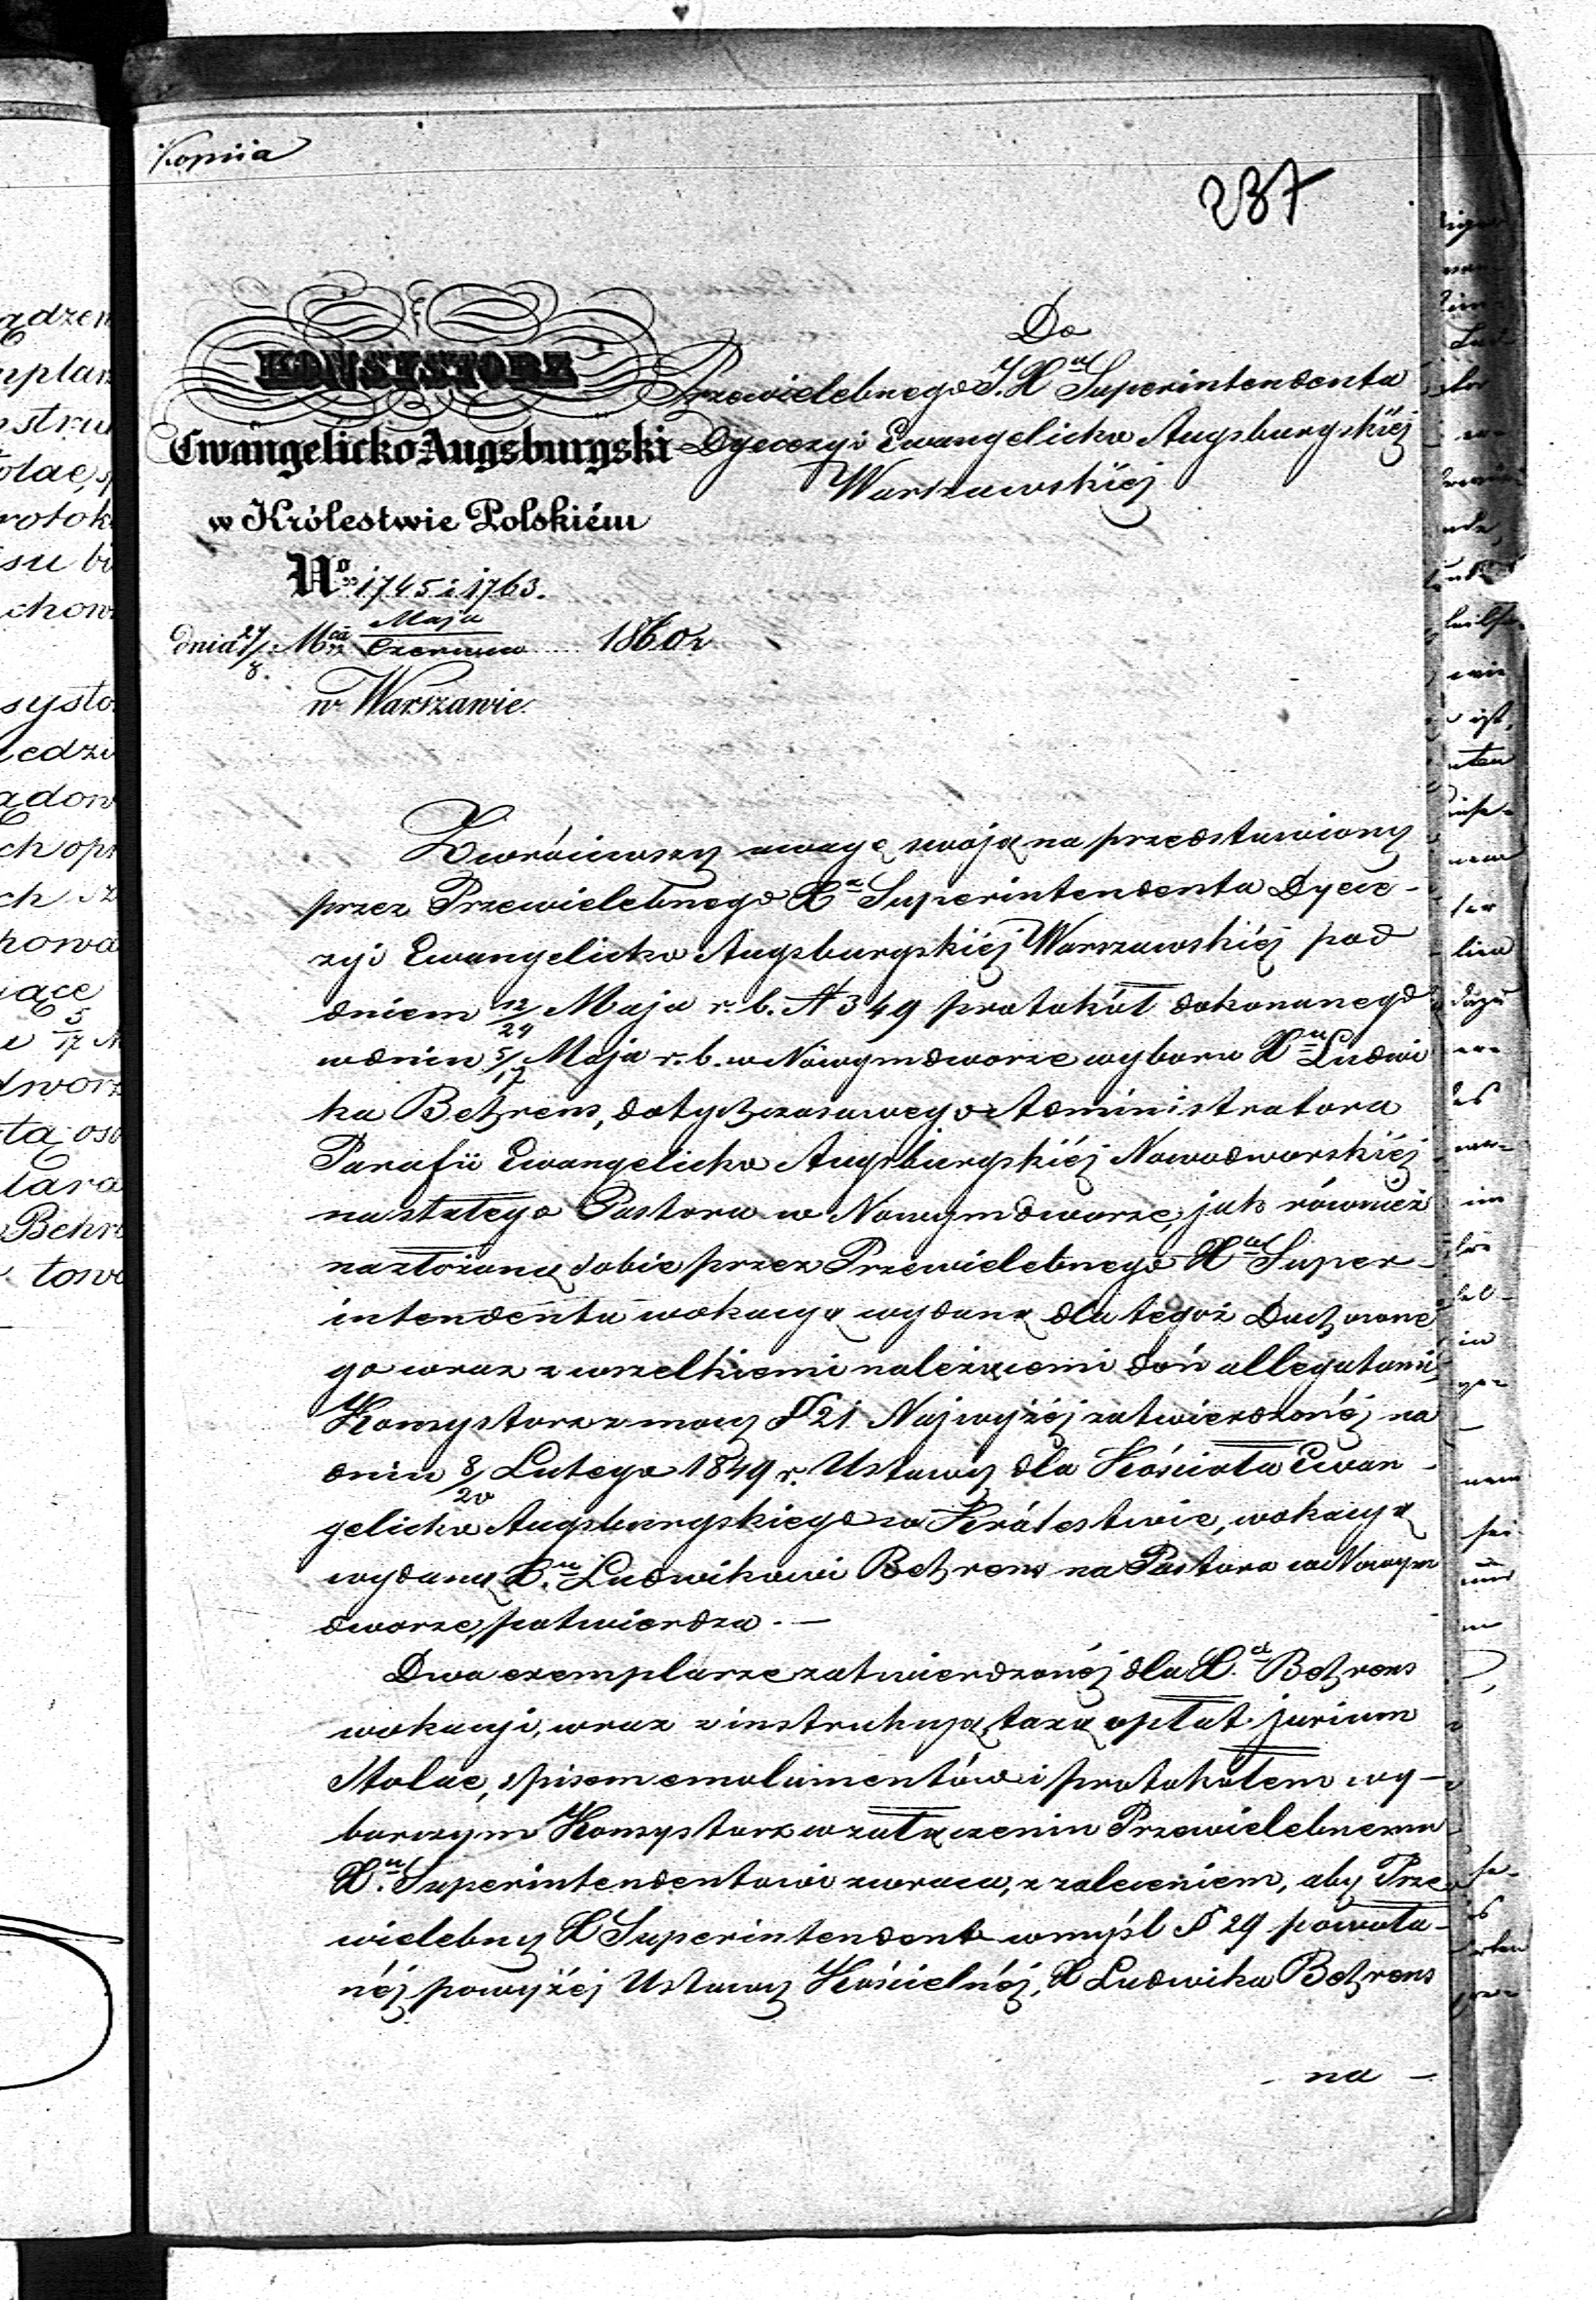 Kopiia
237
KONSYSTORZ
Ewangelicko Augsburgski
w Królestwie Polskiém
No 1745 i 1763.
dnia 27/8. Mca Maja/Czerwca 1860 r
w Warszawie.
Do
Przewielebnego J.Xa Superintendenta
Dyecezyi Ewangelicko Augsburgskiéj
Warszawskiéj
Zwróciwszy uwagę swoją na przedstawiony
przez Przewielebnego Xa Superintendenta Dyece-
zyi Ewangelicko Augsburgskiéj Warszawskiéj pod
dniem 12/24 Maja r. b. N 349 protokół dokonanego
w dniu 5/17 Maja r. b. w Nowymdworze wyboru Xa Ludwi
ka Behrens, dotychczasowego Administratora
Parafii Ewangelicko Augsburgskiéj Nowodworskiéj
na stałego Pastora w Nowymdworze, jak również
na złożoną sobie przez Przewielebnego Xa Super-
intendenta wokacyą wydaną dla tegoż Duchowne
go wraz z wszelkiemi należącemi doń allegatami,
Konsystorz z mocy § 21 Najwyżéj zatwierdzonéj na
dniu 8/20 Lutego 1849 r. Ustawy dla Kościoła Ewan-
gelicko Augsburgskiego w Królestwie, wokacyą
wydaną X. Ludwikowi Behrens na Pastora w Nowym
dworze, potwierdza. —
Dwa exemplarze zatwierdzonéj dla X.a Behrens
wokacyi, wraz z instrukcyą, taxą opłat jurium
Stolae, spisem emolumentów i protokółem wy-
borczym Konsystorz w załączeniu Przewielebnemu
X. Superintendentowi zwraca, z zaleceniem, aby Prze
wielebny X Superintendent w myśl § 29 powoła-
néj powyżéj Ustawy Kościelnéj, X Ludwika Behrens
- na -